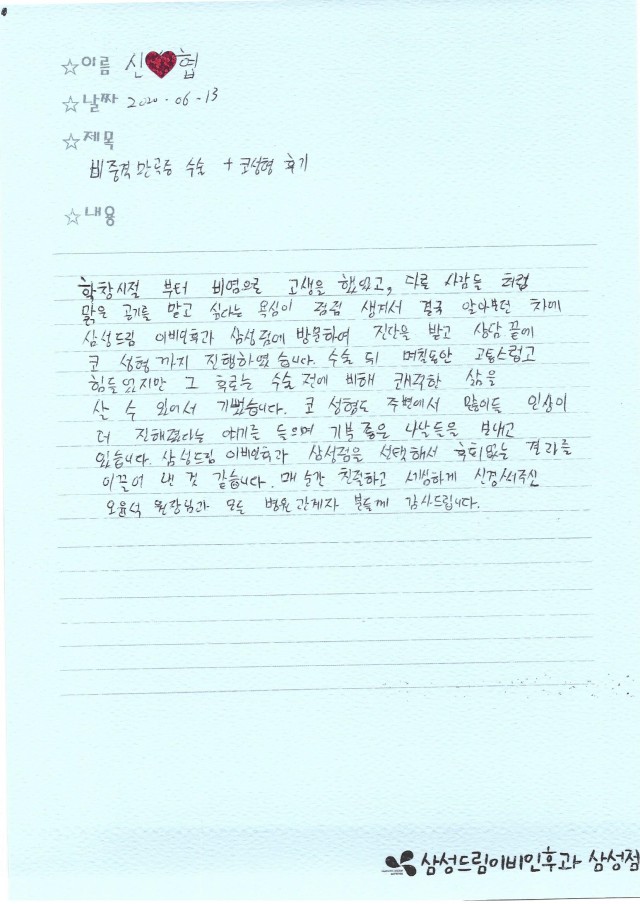 ☆이름 신♥협
☆날짜 2020-06-13
☆제목
비중격만곡증 수술 + 코성형 후기
☆내용
학창시절 부터 비염으로 고생을 했었고, 다른 사람들 처럼
맑은 공기를 맡고 싶다는 욕심이 점점 생겨서 결국 알아보던 차에
삼성드림 이비인후과 삼성점에 방문하여 진단을 받고 상담 끝에
코 성형까지 진행하였습니다. 수술 뒤 며칠동안 고통스럽고
힘들었지만 그 후로는 수술 전에 비해 쾌적한 삶을
살 수 있어서 기뻤습니다. 코 성형도 주변에서 많이들 인상이
더 진해졌다는 얘기를 들으며 기분 좋은 나날들을 보내고
있습니다. 삼성드림 이비인후과 삼성점을 선택해서 후회없는 결과를
이끌어 낸 것 같습니다. 매 순간 친절하고 세심하게 신경써주신
오윤석 원장님과 모든 병원관계자 분들께 감사드립니다.
삼성드림이비인후과 삼성점